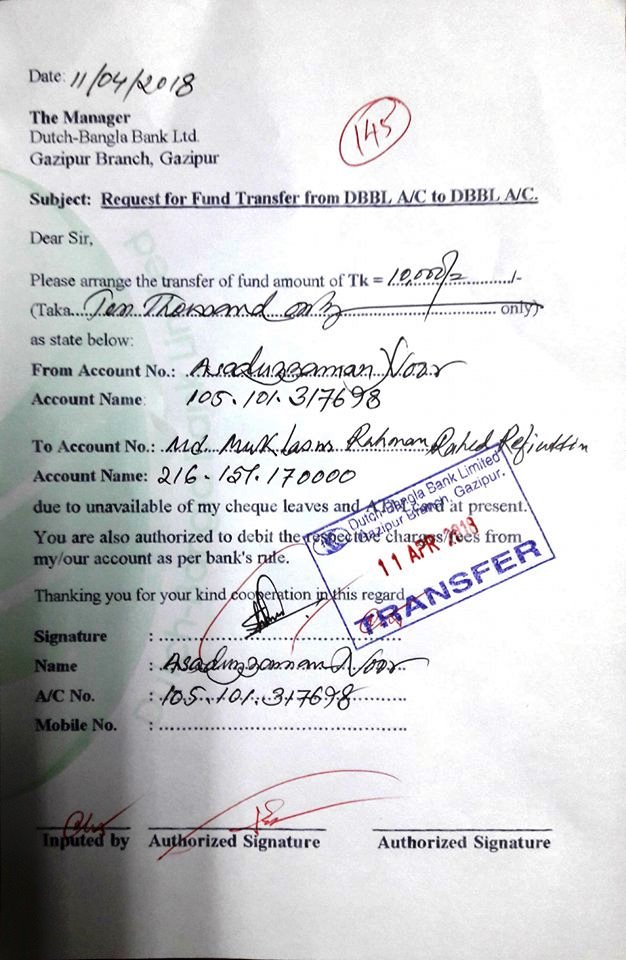 Date: 11/04/2018
145
The Manager
Dutch-Bangla Bank Ltd.
Gazipur Branch, Gazipur
Subject: Request for Fund Transfer from DBBL A/C to DBBL A/C.
Dear Sir,
Please arrange the transfer of fund amount of Tk = 10,000/=/-
(Taka Ten Thousand only only)
as state below:
From Account No.: Asaduzzaman Noor
Account Name: 105.101.317698
To Account No.: Md. Rahman Rahed
Account Name: 216.151.170000
due to unavailable of my cheque leaves and ATM card at present.
You are also authorized to debit the respective charges/fees from
my/our account as per bank's rule.
Dutch-Bangla Bank Limited
Gazipur Branch, Gazipur.
11 APR 2018
TRANSFER
Thanking you for your kind cooperation in this regard
Signature :
Name : Asaduzzaman Noor
A/C No. : 105.101.317698
Mobile No. :
Inputed by Authorized Signature Authorized Signature